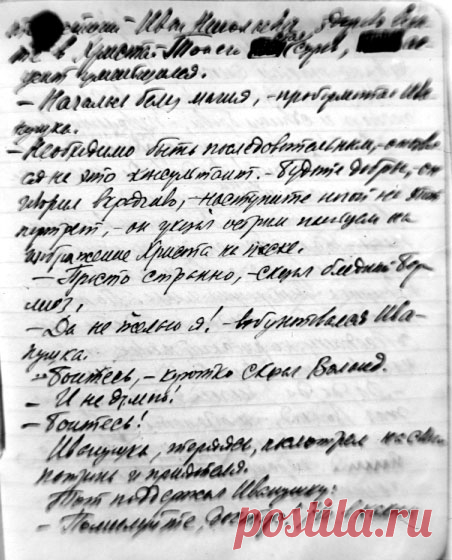 Иван Николаевич, здорово
в Христа. Тот
усмехнулся.
– Началась белая магия, – пробормотал Ива-
нушка.
– Необходимо быть последовательным, –
ся на это консультант. – Будьте добры, – он
говорил вкрадчиво, – наступите ногой на этот
портрет, – он указал острым пальцем на
изображение Христа на песке.
– Просто странно, – сказал бледный Бер-
лиоз.
– Да не желаю я! – взбунтовался Ива-
нушка.
– Боитесь, – коротко сказал Воланд.
– И не думаю!
– Боитесь!
Иванушка, теряясь, посмотрел на своего
патрона и приятеля.
Тот поддержал Иванушку:
– Помилуйте, доктор!
postila.ru